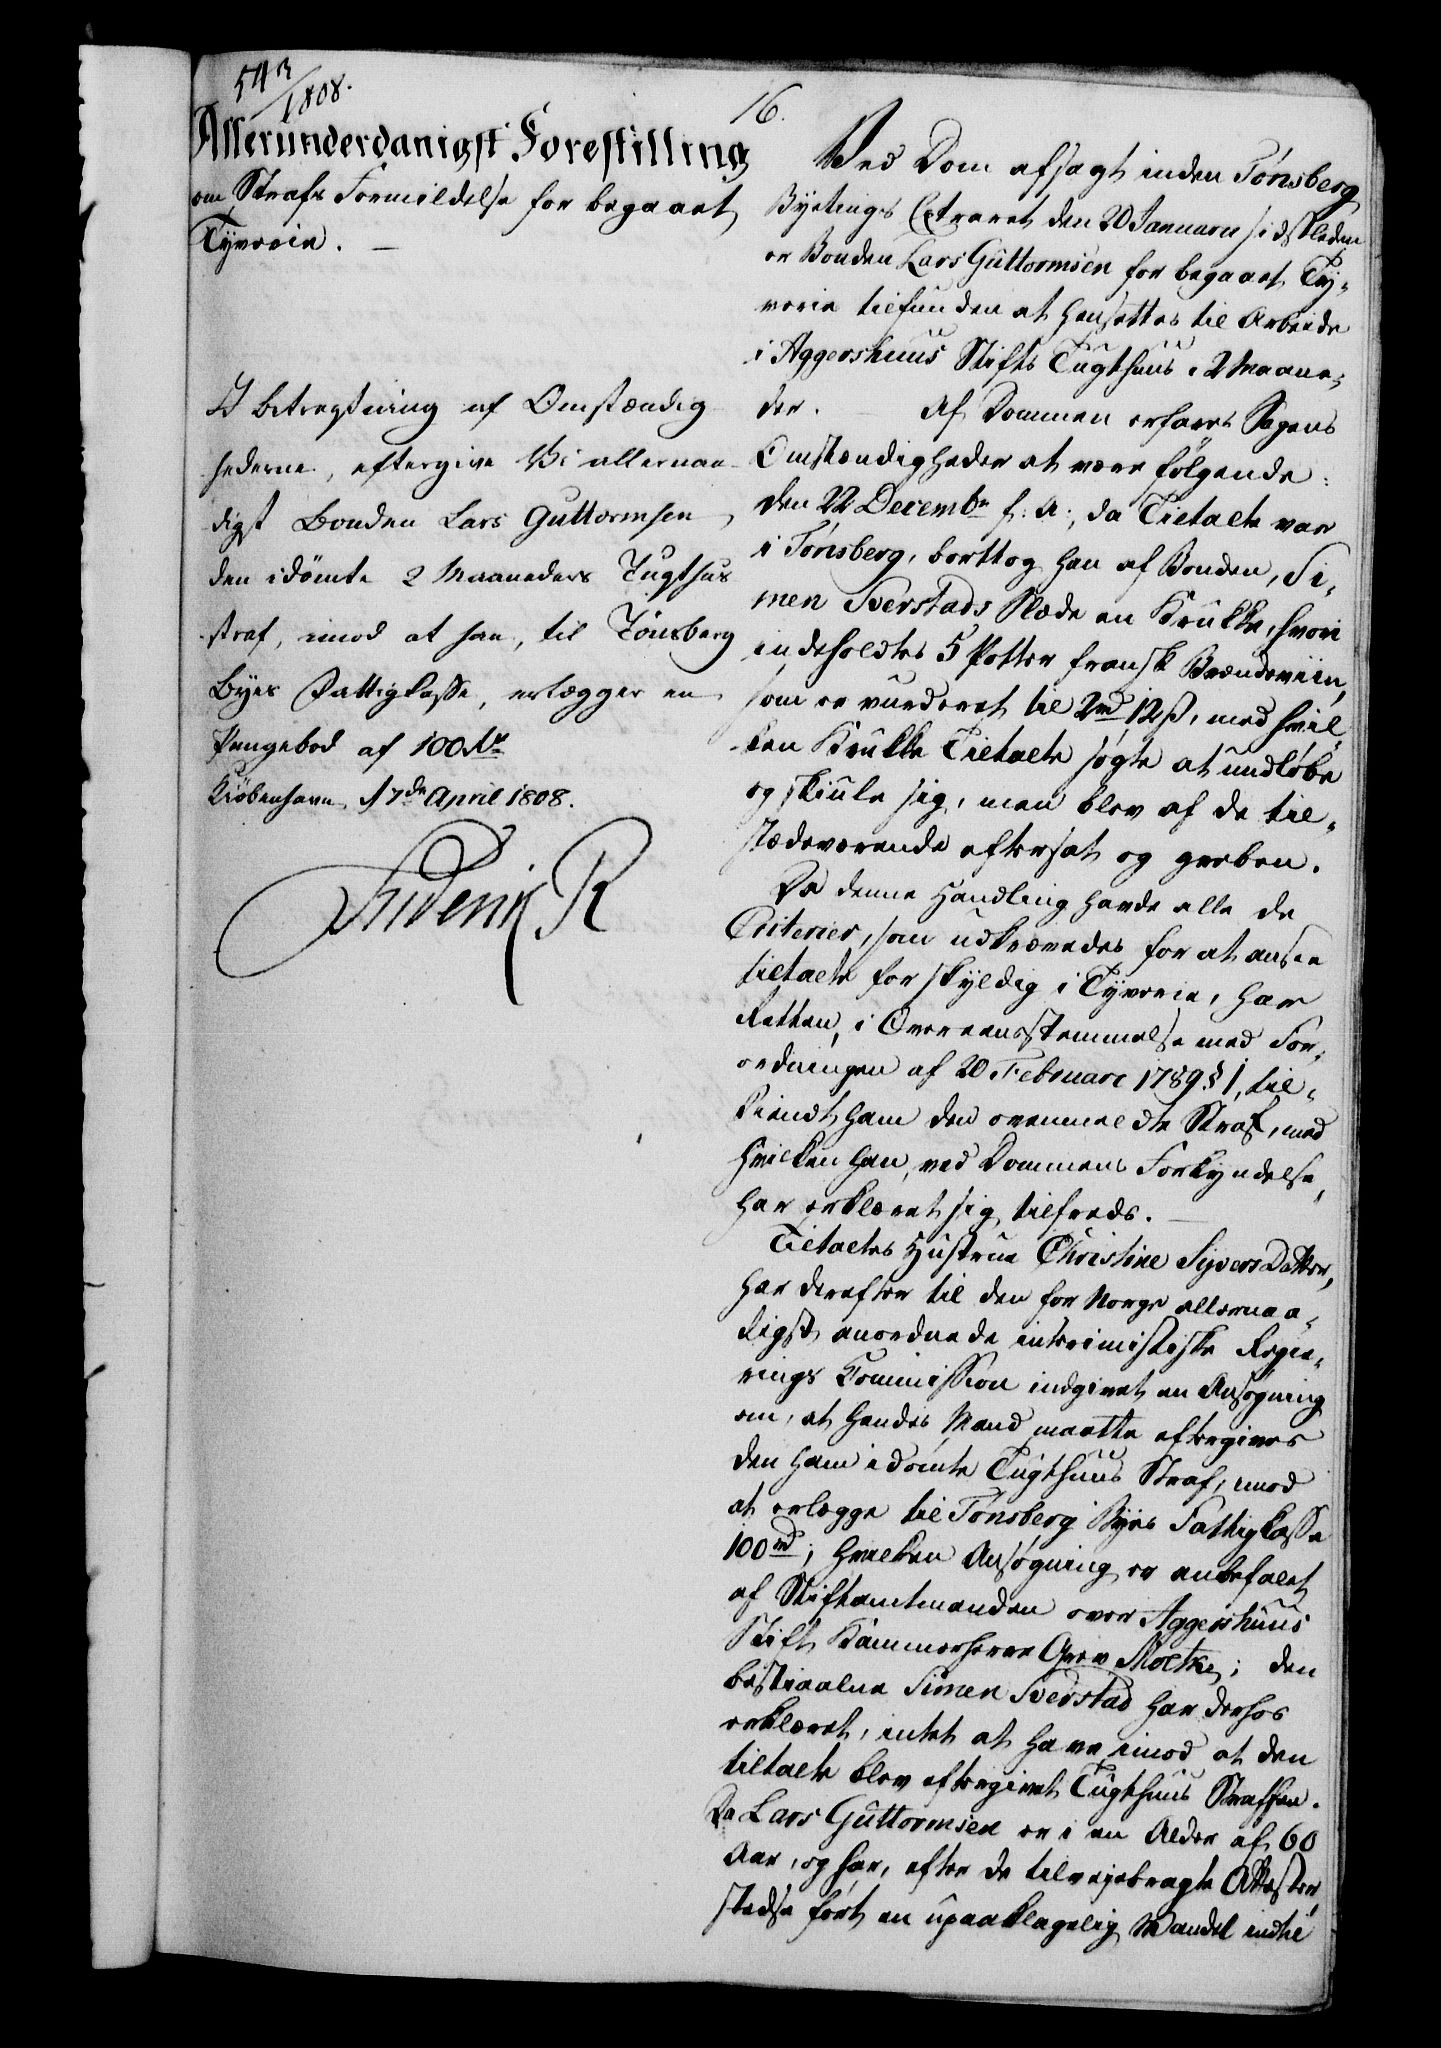 543/1808.
16.
Allerunderdanigst Forestilling
om Strafs Formildelse for begaaet
Tyverie. —
I betragtning af Omstændig
hederne, eftergive Vi allernaa-
digst Bonden Lars Guttormsen,
den idömte 2 Maaneders Tugthus
straf, imod at han, til Tönsberg
Byes Fattigkasse, erlægger en
Pengebod af 100 Rdr
Kiöbenhavn, d 7de April 1808.
Frideric R
Ved Dom afsagt inden Tönsberg
Byetings Extraret den 20 Januarii sidstleden
er Bonden Lars Guttormsen for begaaet Ty-
verie tilfunden at hensættes til Arbeide
i Aggershuus Stifts Tugthuus i 2 Maane-
der. Af Dommen erfares Sagens
Omstændigheder at være fölgende:
den 22 Decembr f: A:, da Tiltalte var
i Tönsberg, borttog han af Bonden, Si-
men Sverstads Slæde en Krukke, hvori
indeholdtes 5 Potter fransk Brændeviin,
som er vurderet til 2 rd 12 ß, med hvil-
ken Krukke Tiltalte søgte at undløbe
og skiule sig, men blev af de til-
stædeværende eftersat og greben.
Da denne Handling havde alle de
Criterier, som udkrævedes for at ansee
tiltalte for skyldig i Tyverie, har
Retten, i Overeensstemmelse med For-
ordningen af 20 Februarii 1789 § 1, til-
kiendt ham den ovenmeldte Straf, med
hvilken han, ved Dommens Forkyndelse,
har erklæret sig tilfreds. —
Tiltaltes Hustrue Christine Syvers Datter,
har derefter til den for Norge allernaa-
digst anordnede interimistiske Regie-
rings Commission indgivet en Ansøgning
om, at hendes Mand maatte eftergives
den ham idömte Tugthuus Straf, mod
at erlægge til Tönsberg Byes Fattigkasse
100 rd; hvilken Ansøgning er anbefalet
af Stiftamtmanden over Aggershuus
Stift Kammerherre Grev Moltke; den
bestiaalne Simen Sverstad har derhos
erklæret, intet at have imod at den
tiltalte blev eftergivet Tugthuus Straffen.
Da Lars Guttormsen er i en Alder af 60
Aar, og har, efter de tilvejebragte Attester,
stedse ført en upaaklagelig Vandel indtil